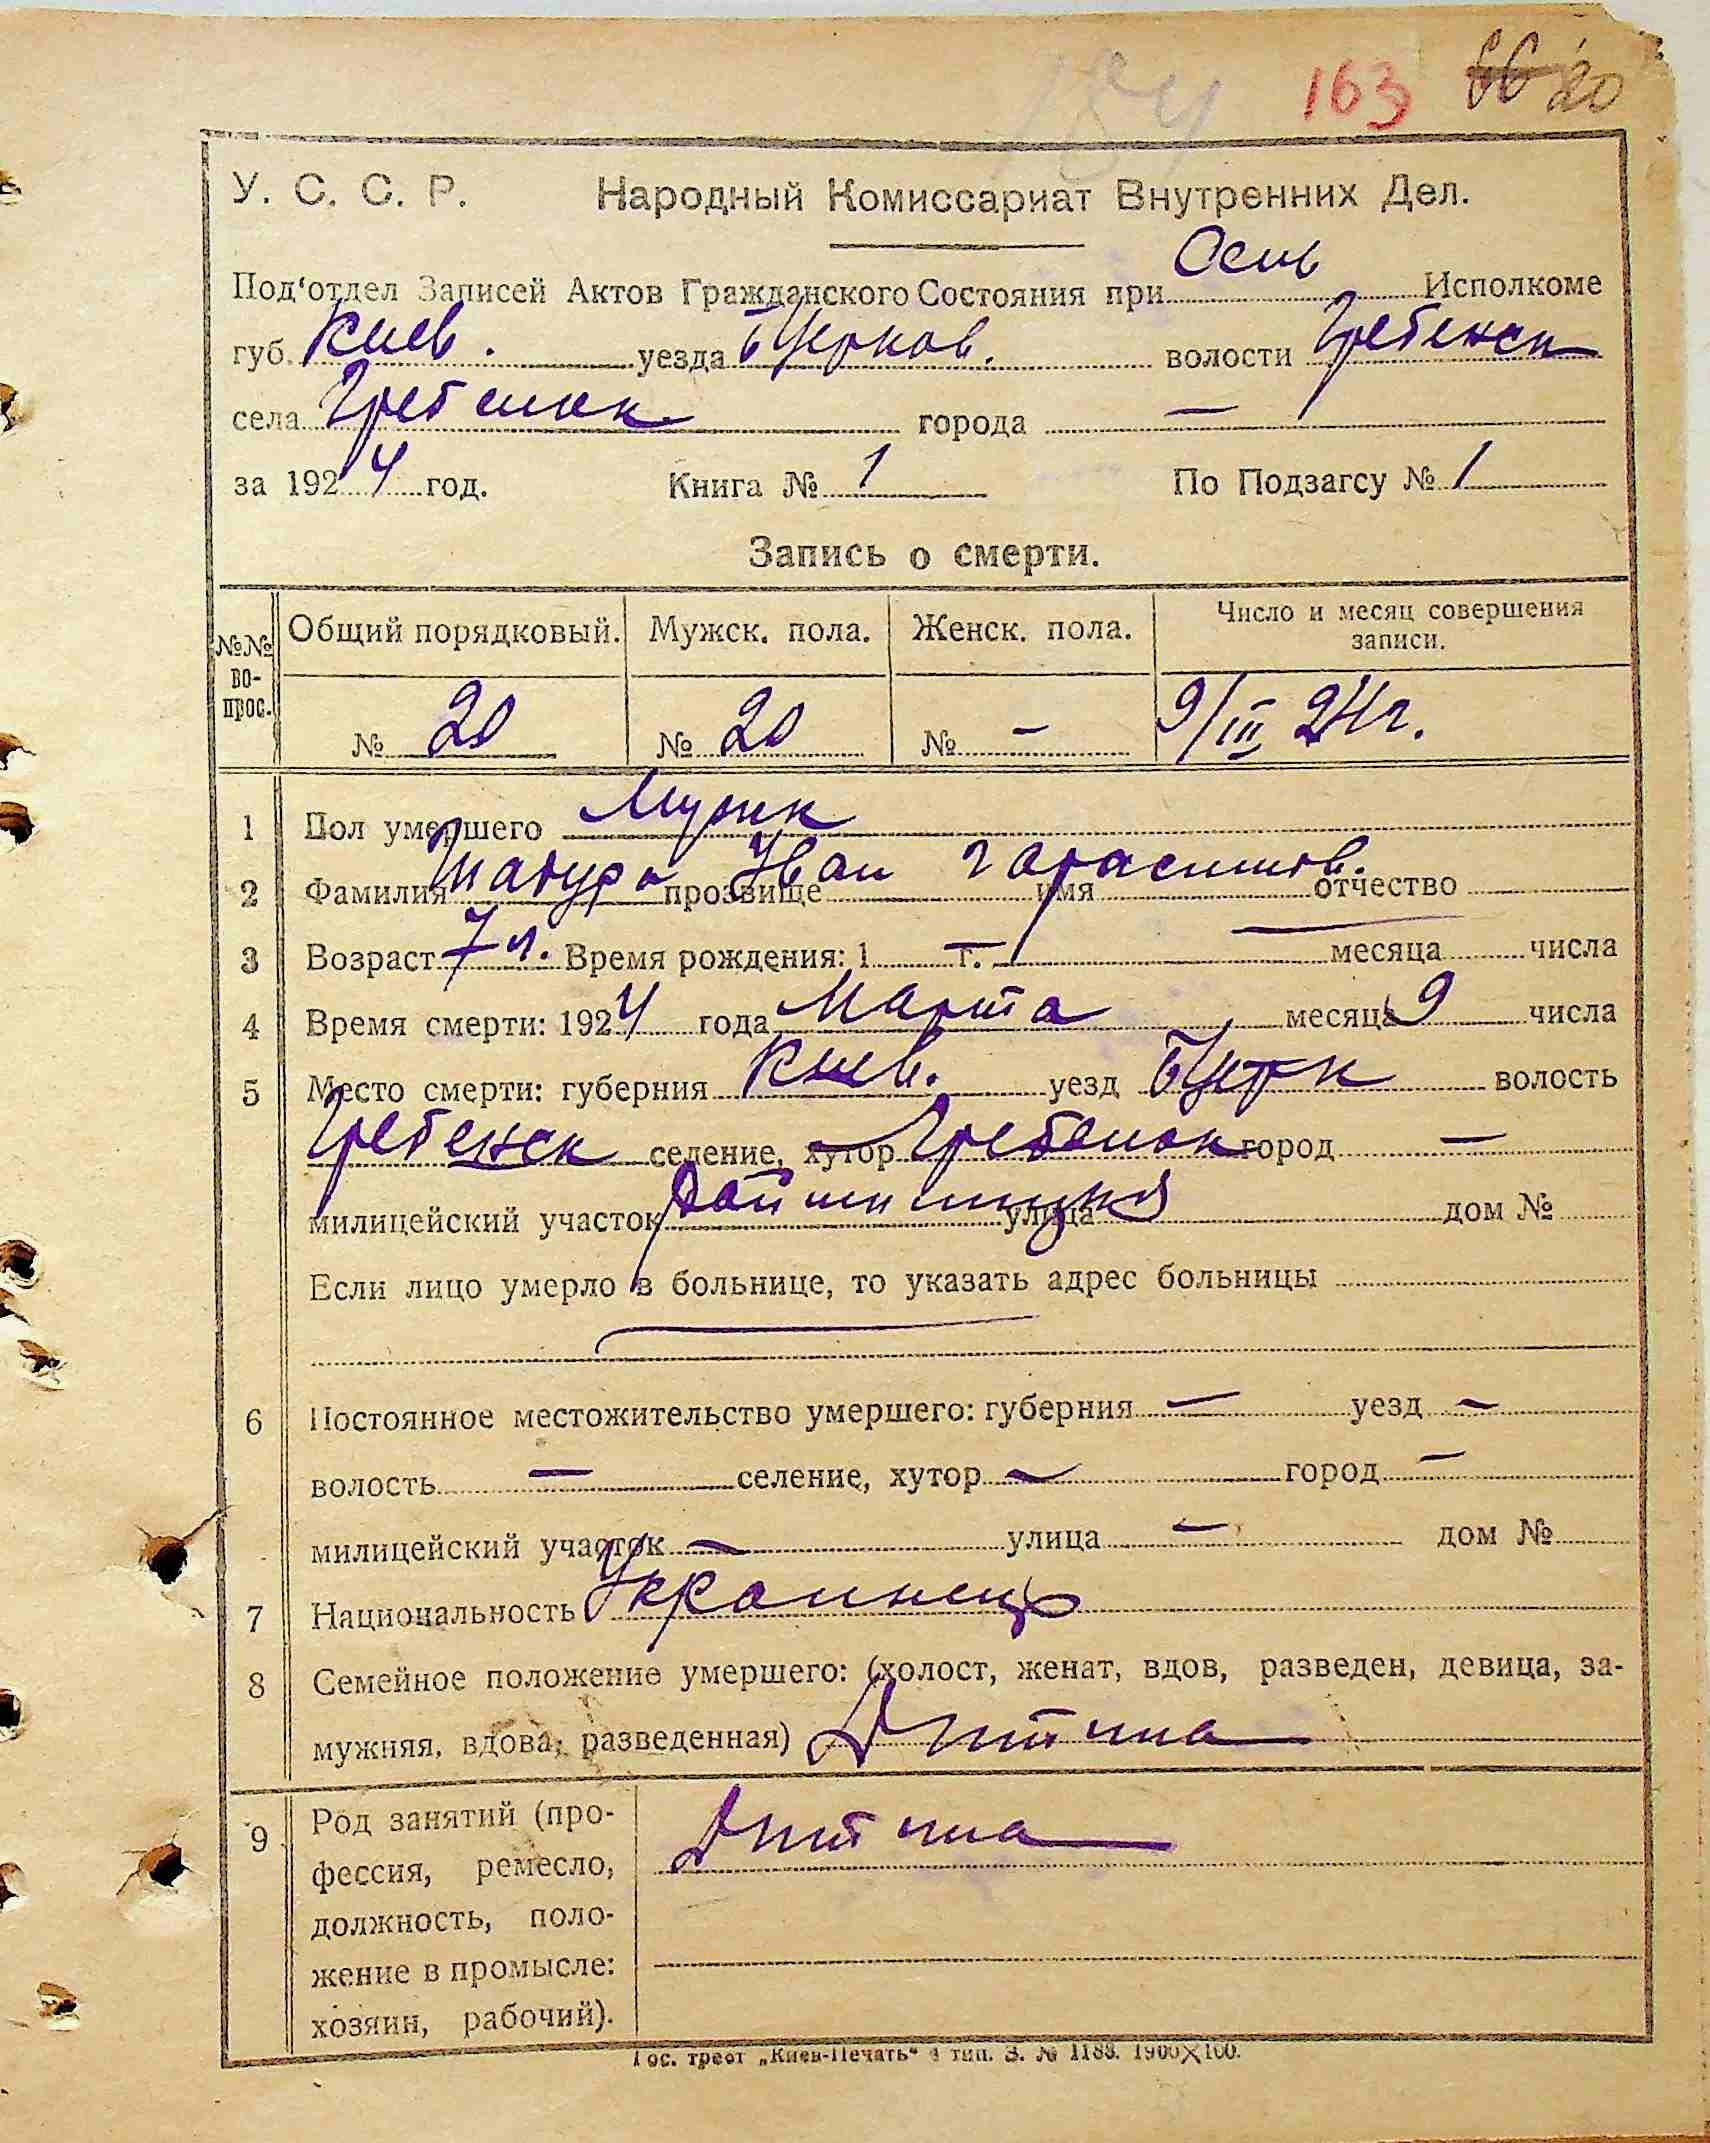 184 163 66 20
У. С. С. Р. Народный Комиссариат Внутренних Дел.
Под'отдел Записей Актов Гражданского Состояния при Исполкоме
губ. Киев. уезда БЦерков. волости Гребенск
села Гребенок города —
за 1924 год. Книга № 1 По Подзагсу № 1
Запись о смерти.
№№ во-прос. Общий порядковый. Мужск. пола. Женск. пола. Число и месяц совершения записи.
№ 20 № 20 № — 9/III 24 г.
1 Пол умершего Мужск
2 Фамилия прозвище Иван имя Гарасимов. отчество
3 Возраст 7 л. Время рождения: 1 — г. месяца числа
4 Время смерти: 1924 года Марта месяца 9 числа
5 Место смерти: губерния Киев. уезд БЦерк волость
Гребенск селение, хутор Гребенок город —
милицейский участок улица дом №
Если лицо умерло в больнице, то указать адрес больницы
6 Постоянное местожительство умершего: губерния — уезд —
волость — селение, хутор — город —
милицейский участок — улица — дом №
7 Национальность Украинец
8 Семейное положение умершего: (холост, женат, вдов, разведен, девица, за-
мужняя, вдова, разведенная) Дитина
9 Род занятий (про- Дитина
фессия, ремесло,
должность, поло-
жение в промысле:
хозяин, рабочий).
Гос. трест „Киев-Печать“ 4 тип. З. № 1188. 1900×100.